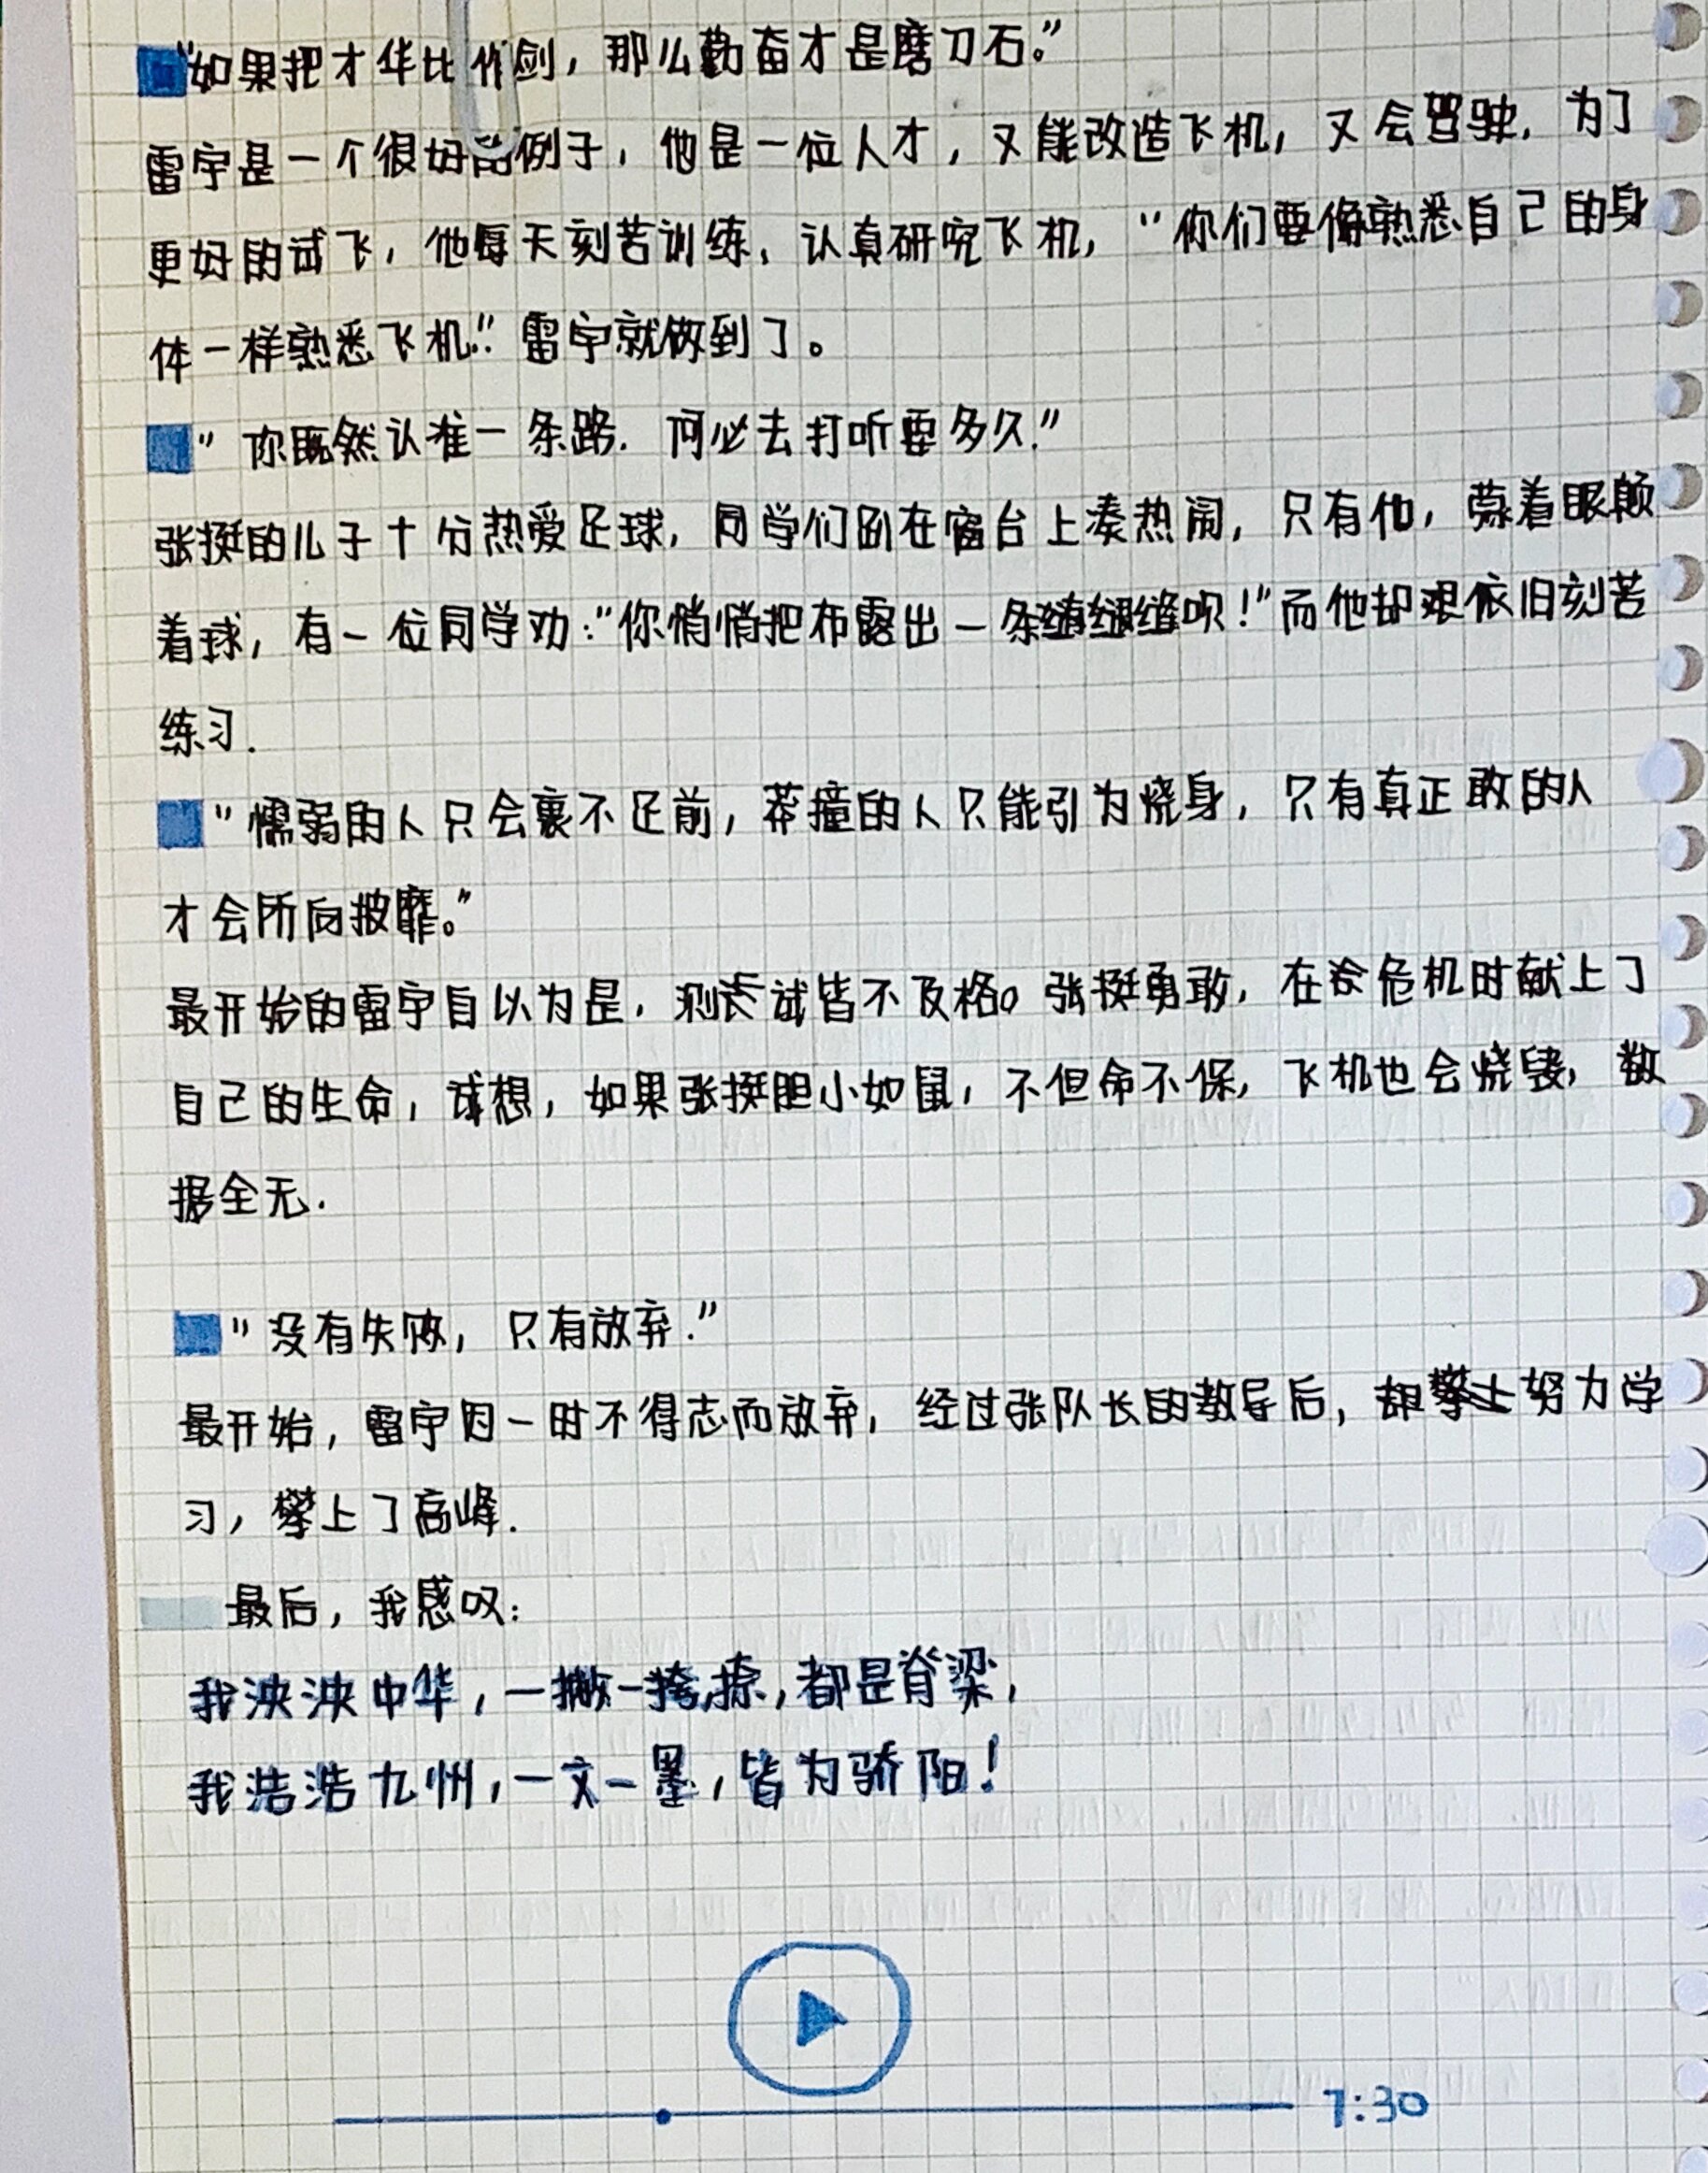 “如果把才华比作剑，那么勤奋才是磨刀石。”
雷宇是一个很好的例子，他是一位人才，又能改造飞机，又会驾驶，为了
更好的试飞，他每天刻苦训练，认真研究飞机，“你们要像熟悉自己的身
体一样熟悉飞机！”雷宇就做到了。
“你既然认准一条路，何必去打听要多久.”
张挺的儿子十分热爱足球，同学们趴在窗台上凑热闹，只有他，蒙着眼颠
着球，有一位同学劝：“你悄悄把布露出一条缝呗！”而他却依旧刻苦
练习.
“懦弱的人只会裹不足前，莽撞的人只能引为烧身，只有真正敢的人
才会所向披靡。”
最开始的雷宇自以为是，测试皆不及格。张挺勇敢，在危机时献上了
自己的生命，试想，如果张挺胆小如鼠，不但命不保，飞机也会烧毁，数
据全无.
“没有失败，只有放弃.”
最开始，雷宇因一时不得志而放弃，经过张队长的教导后，却努力学
习，攀上了高峰.
最后，我感叹：
我泱泱中华，一撇一捺，都是脊梁，
我浩浩九州，一文一墨，皆为骄阳！
7:30